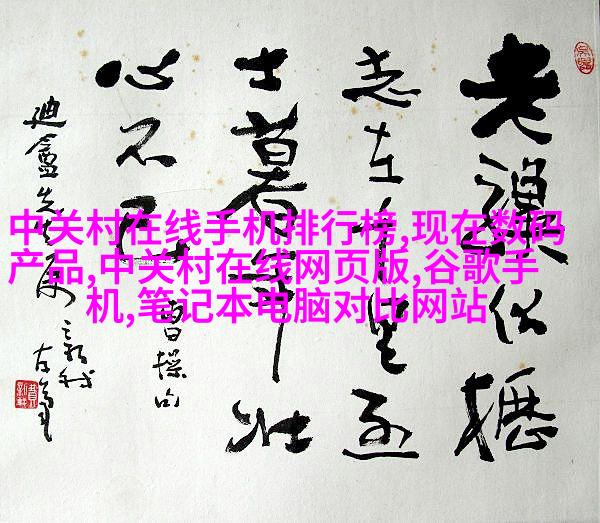 中关村在线手机排行榜,现在数码
产品,中关村在线网页版,谷歌手
机,笔记本电脑对比网站
老驥伏櫪
志在千里烈
士暮年壮
心不已
曹操句
迪盦先生属